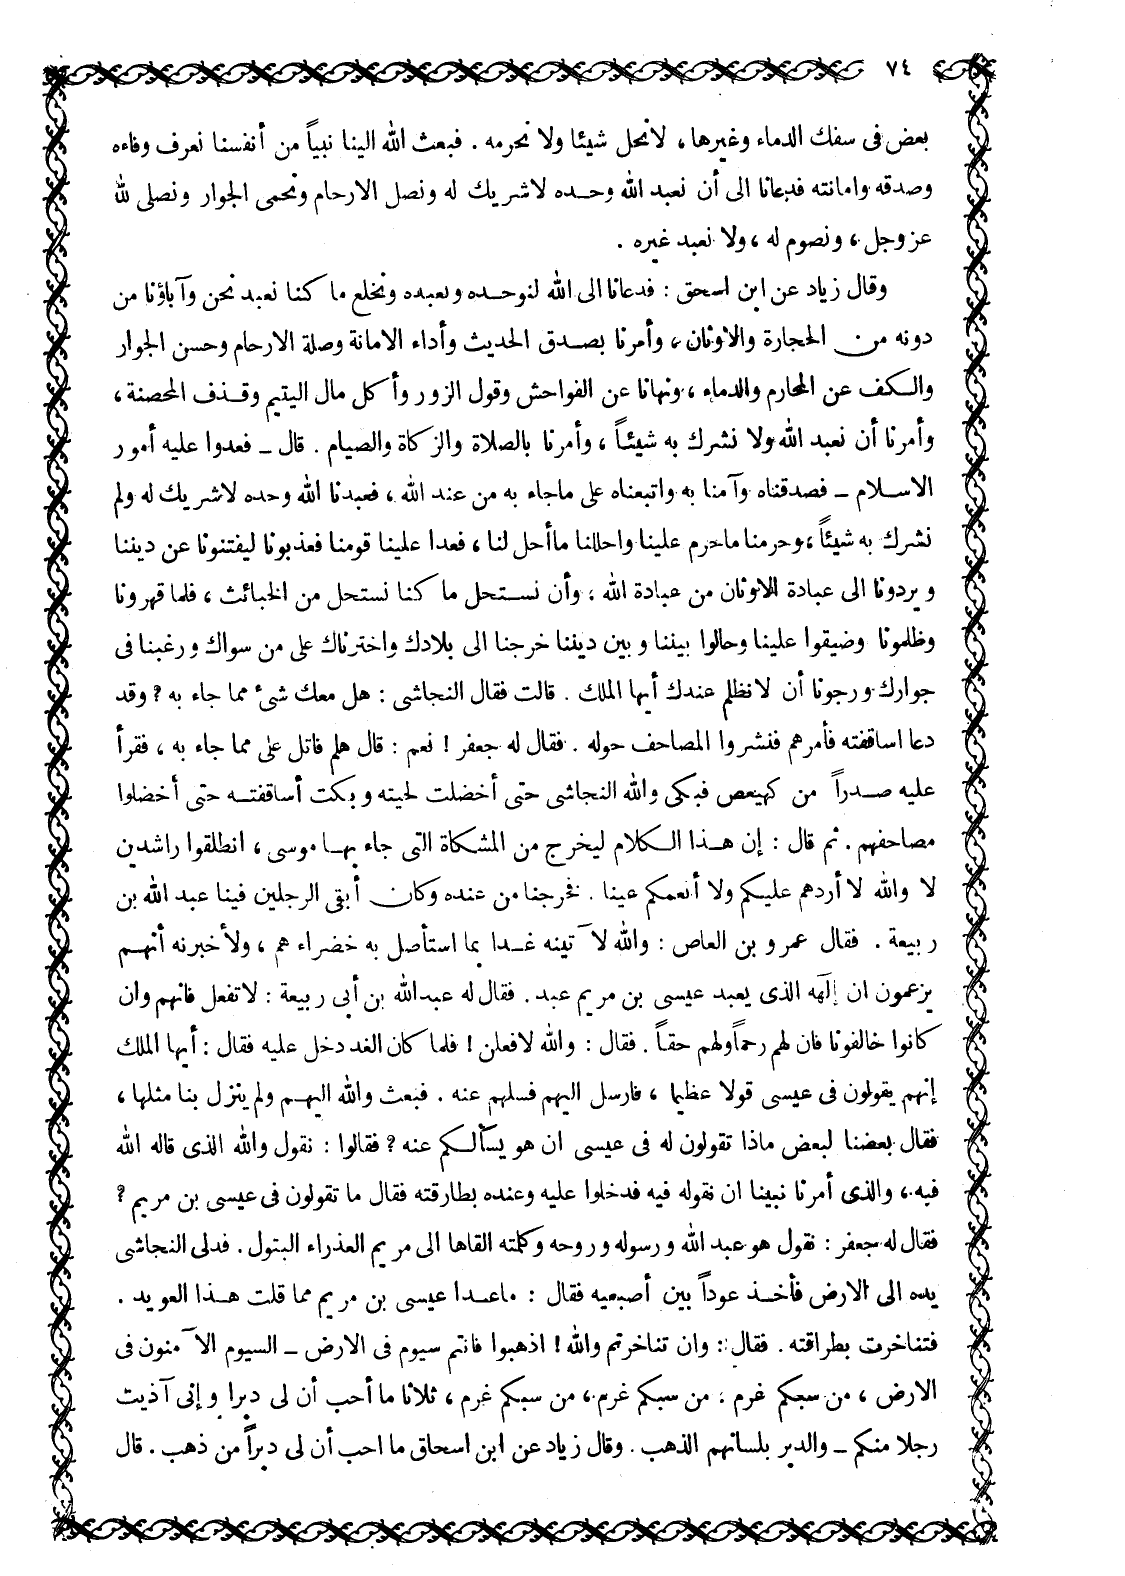 ٧٤
بعض فى سفك الدماء وغيرها، لا نحل شيئا ولا نحرمه . فبعث الله الينا نبياً من أنفسنا نعرف وفاءه
وصدقه وامانته فدعانا الى أن نعبد الله وحده لاشريك له ونصل الارحام ونحمى الجوار ونصلى لله
عز وجل ، ونصوم له ، ولا نعبد غيره .
وقال زياد عن ابن اسحق : فدعانا الى الله لنوحده ونعبده ونخلع ما كنا نعبد نحن وآباؤنا من
دونه من الحجارة والاوثان ، وأمرنا بصدق الحديث وأداء الامانة وصلة الارحام وحسن الجوار
والكف عن المحارم والدماء ، ونهانا عن الفواحش وقول الزور وأكل مال اليتيم وقذف المحصنة ،
وأمرنا أن نعبد الله ولا نشرك به شيئاً ، وأمرنا بالصلاة والزكاة والصيام . قال ـ فعدوا عليه أمور
الاسلام ـ فصدقناه وآمنا به واتبعناه على ماجاء به من عند الله ، فعبدنا الله وحده لاشريك له ولم
نشرك به شيئاً ، وحرمنا ماحرم علينا واحللنا ماأحل لنا ، فعدا علينا قومنا فعذبونا ليفتنونا عن ديننا
ويردونا الى عبادة الاوثان من عبادة الله ، وأن نستحل ما كنا نستحل من الخبائث ، فلما قهرونا
وظلمونا وضيقوا علينا وحالوا بيننا وبين ديننا خرجنا الى بلادك واخترناك على من سواك ورغبنا فى
جوارك ورجونا أن لانظلم عندك أيها الملك . قالت فقال النجاشى : هل معك شىء مما جاء به ? وقد
دعا اساقفته فأمرهم فنشروا المصاحف حوله . فقال له جعفر ! نعم : قال هلم فاتل على مما جاء به ، فقرأ
عليه صدراً من كهيعص فبكى والله النجاشى حتى أخضلت لحيته وبكت أساقفته حتى أخضلوا
مصاحفهم . ثم قال : إن هذا الكلام ليخرج من المشكاة التى جاء بها موسى ، انطلقوا راشدين
لا والله لا أردهم عليكم ولا أنعمكم عينا . فخرجنا من عنده وكان أبقى الرجلين فينا عبد الله بن
ربيعة . فقال عمرو بن العاص : والله لآتينه غدا بما استأصل به خضراء هم ، ولأخبرنه أنهم
يزعمون ان إلهه الذى يعبد عيسى بن مريم عبد . فقال له عبدالله بن أبى ربيعة : لاتفعل فانهم وان
كانوا خالفونا فان لهم رحماً ولهم حقاً . فقال : والله لافعلن ! فلما كان الغد دخل عليه فقال : أيها الملك
إنهم يقولون فى عيسى قولا عظيما ، فارسل اليهم فسلهم عنه . فبعث والله اليهم ولم ينزل بنا مثلها ،
فقال بعضنا لبعض ماذا تقولون له فى عيسى ان هو يسألكم عنه ? فقالوا : نقول والله الذى قاله الله
فيه ، والذى أمرنا نبينا ان نقوله فيه فدخلوا عليه وعنده بطارقته فقال ما تقولون فى عيسى بن مريم ?
فقال له جعفر : نقول هو عبد الله ورسوله وروحه وكلمته القاها الى مريم العذراء البتول . فدلى النجاشى
يده الى الارض فأخذ عوداً بين أصبعيه فقال : ماعدا عيسى بن مريم مما قلت هذا العويد .
فتناخرت بطراقته . فقال : وان تناخرتم والله ! اذهبوا فانتم سيوم فى الارض ـ السيوم الآمنون فى
الارض ، من سبكم غرم ، من سبكم غرم ، من سبكم غرم ، ثلاثا ما أحب أن لى دبرا وإنى آذيت
رجلا منكم ـ والدبر بلسانهم الذهب . وقال زياد عن ابن اسحاق ما احب أن لى دبراً من ذهب . قال